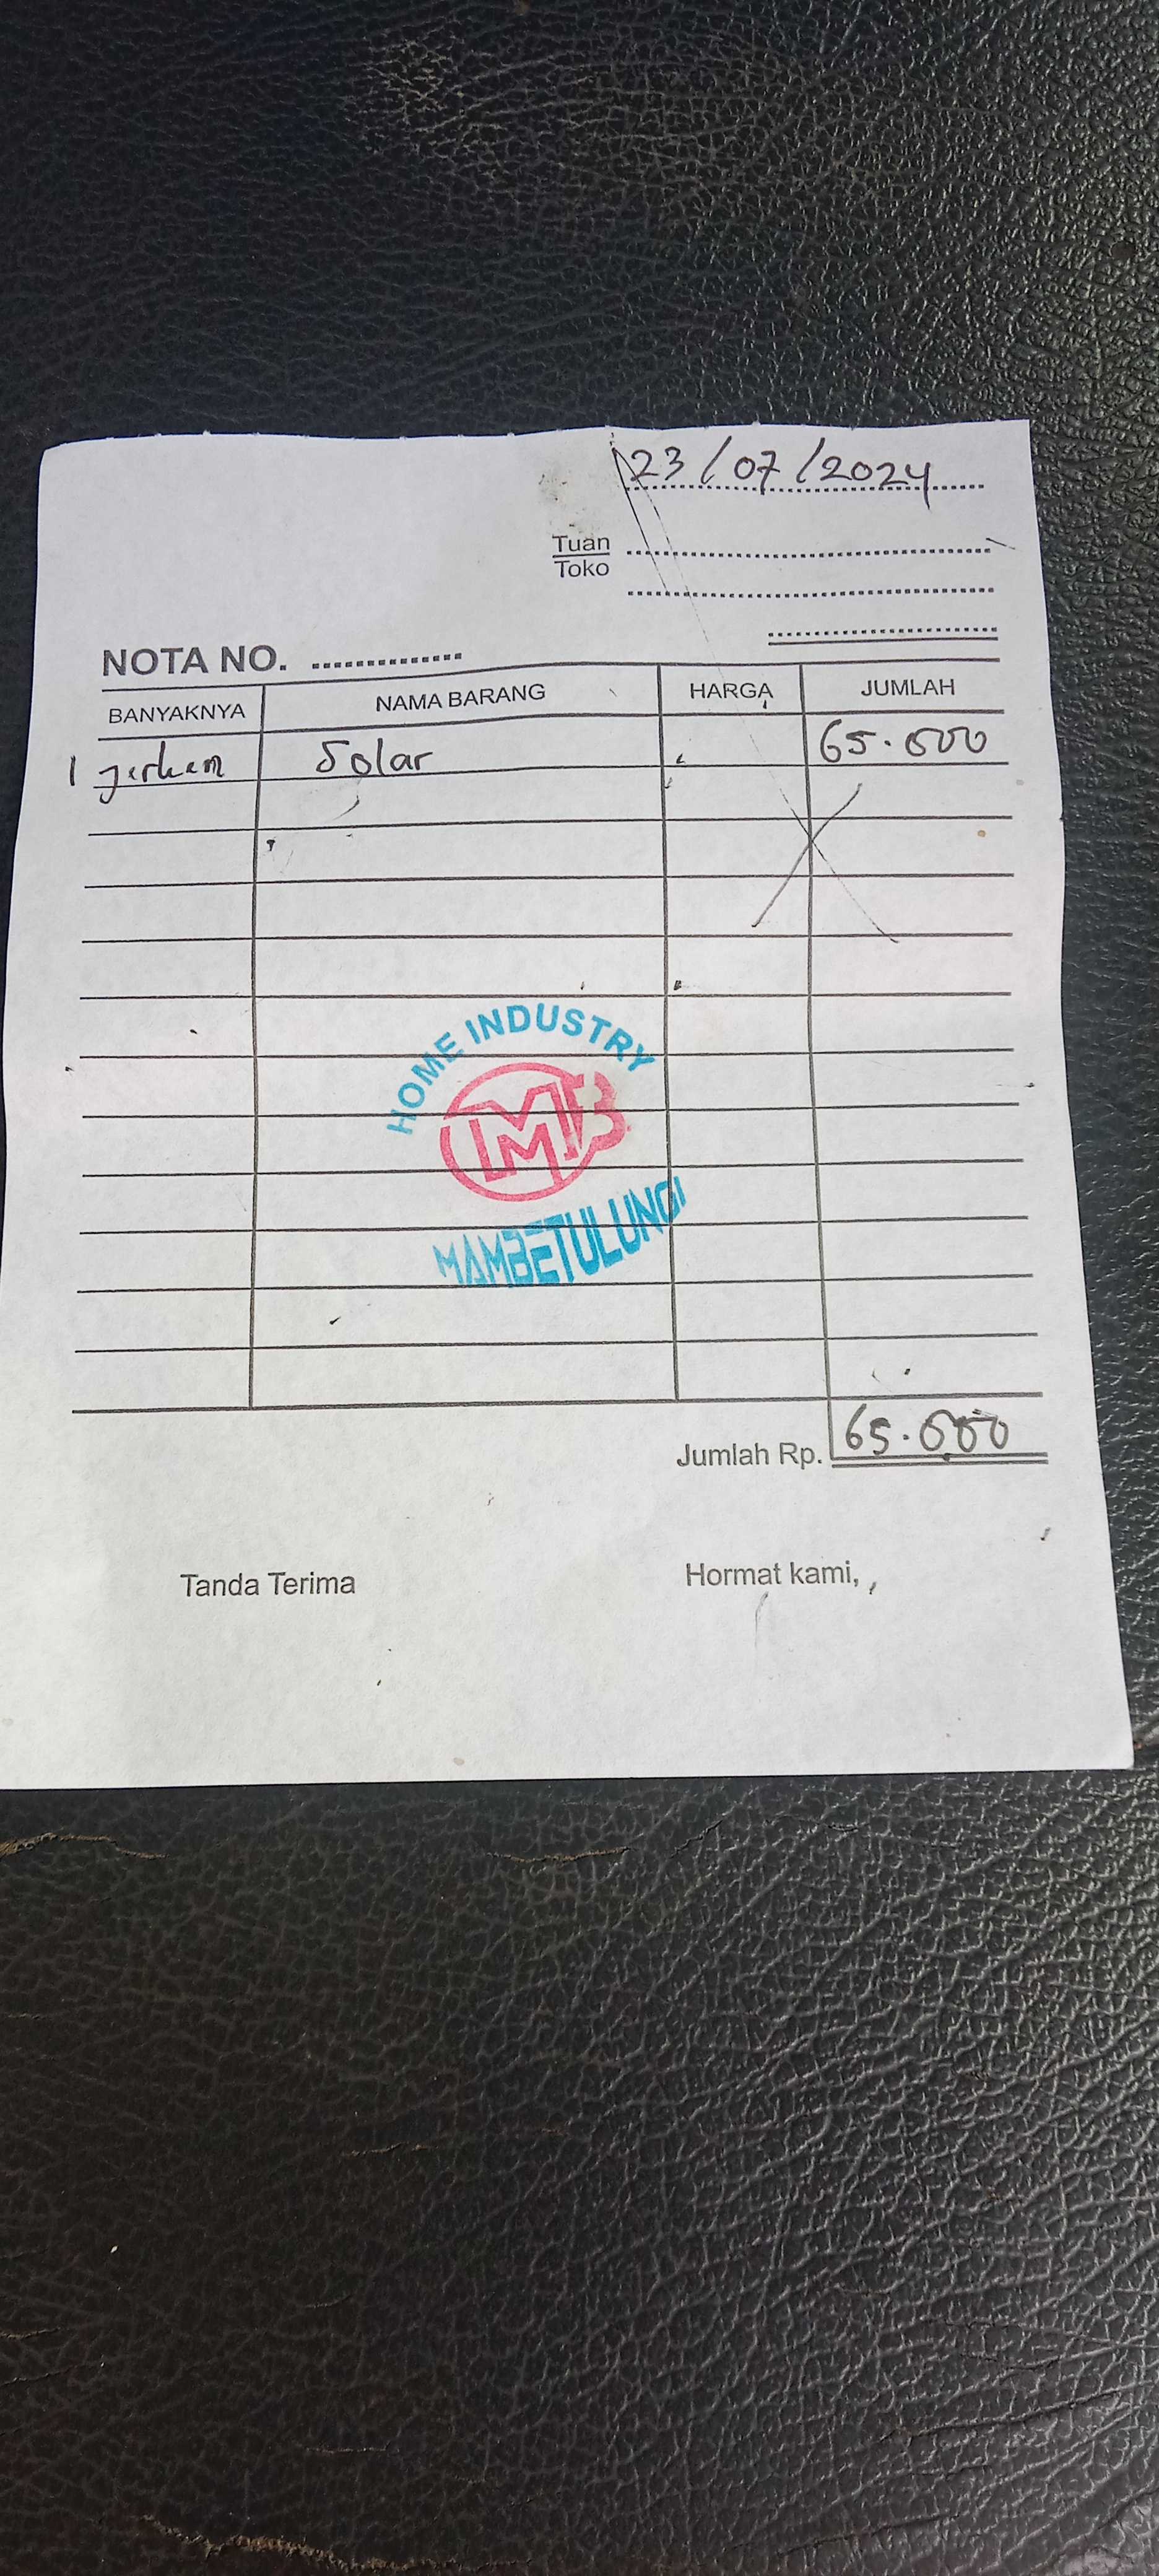 23/07/2024
Tuan
Toko
NOTA NO. ..............
BANYAKNYA NAMA BARANG HARGA JUMLAH
1 jerken Solar 65.000
HOME INDUSTRY
MB
MAMBETULUNGI
Jumlah Rp. 65.000
Tanda Terima Hormat kami,